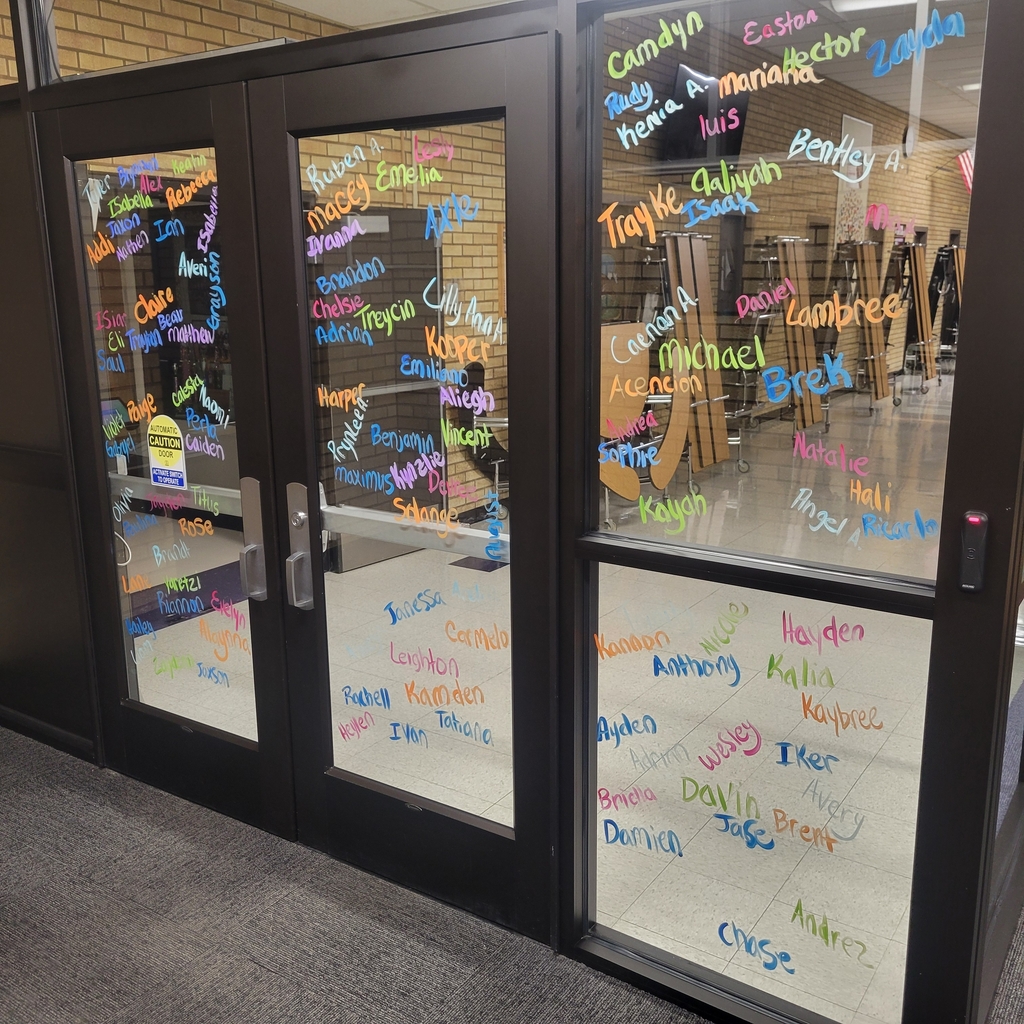 Isabella
Alex
Keatin
Rebecca
Jaxon
Ian
Isabela
Addi
Averi
Grayson
Claire
Eli
Beau
Matthew
Saul
Paige
Calesta
Naomi
Caiden
AUTOMATIC
CAUTION
DOOR
ACTIVATE SWITCH
TO OPERATE
Titus
Rose
Yaretzi
Riannon
Evelyn
Jaxson
Ruben A.
Lesly
Macey
Emelia
Axle
Ivanna
Brandon
Chelsie
Treycin
Lilly Ann A.
Adrian
Kooper
Emiliano
Harper
Aliegh
Benjamin
Vincent
Maximus
Kynzlie
Solange
Janessa
Carmelo
Leighton
Rachell
Kamden
Ivan
Tatiana
Camdyn
Easton
Hector
Zayda
Rudy
Mariana
Kenia A.
Luis
Bentley A.
Aaliyah
Trayke
Isaak
Daniel
Lambree
Caenan A.
Michael
Acencion
Brek
Andrea
Sophie
Natalie
Hali
Kayah
Angel A.
Ricardo
Kannon
Nicole
Hayden
Anthony
Kalia
Kaybree
Ayden
Wesley
Iker
Adrian
Avery
Briella
Davin
Jase
Brent
Damien
Andrez
Chase